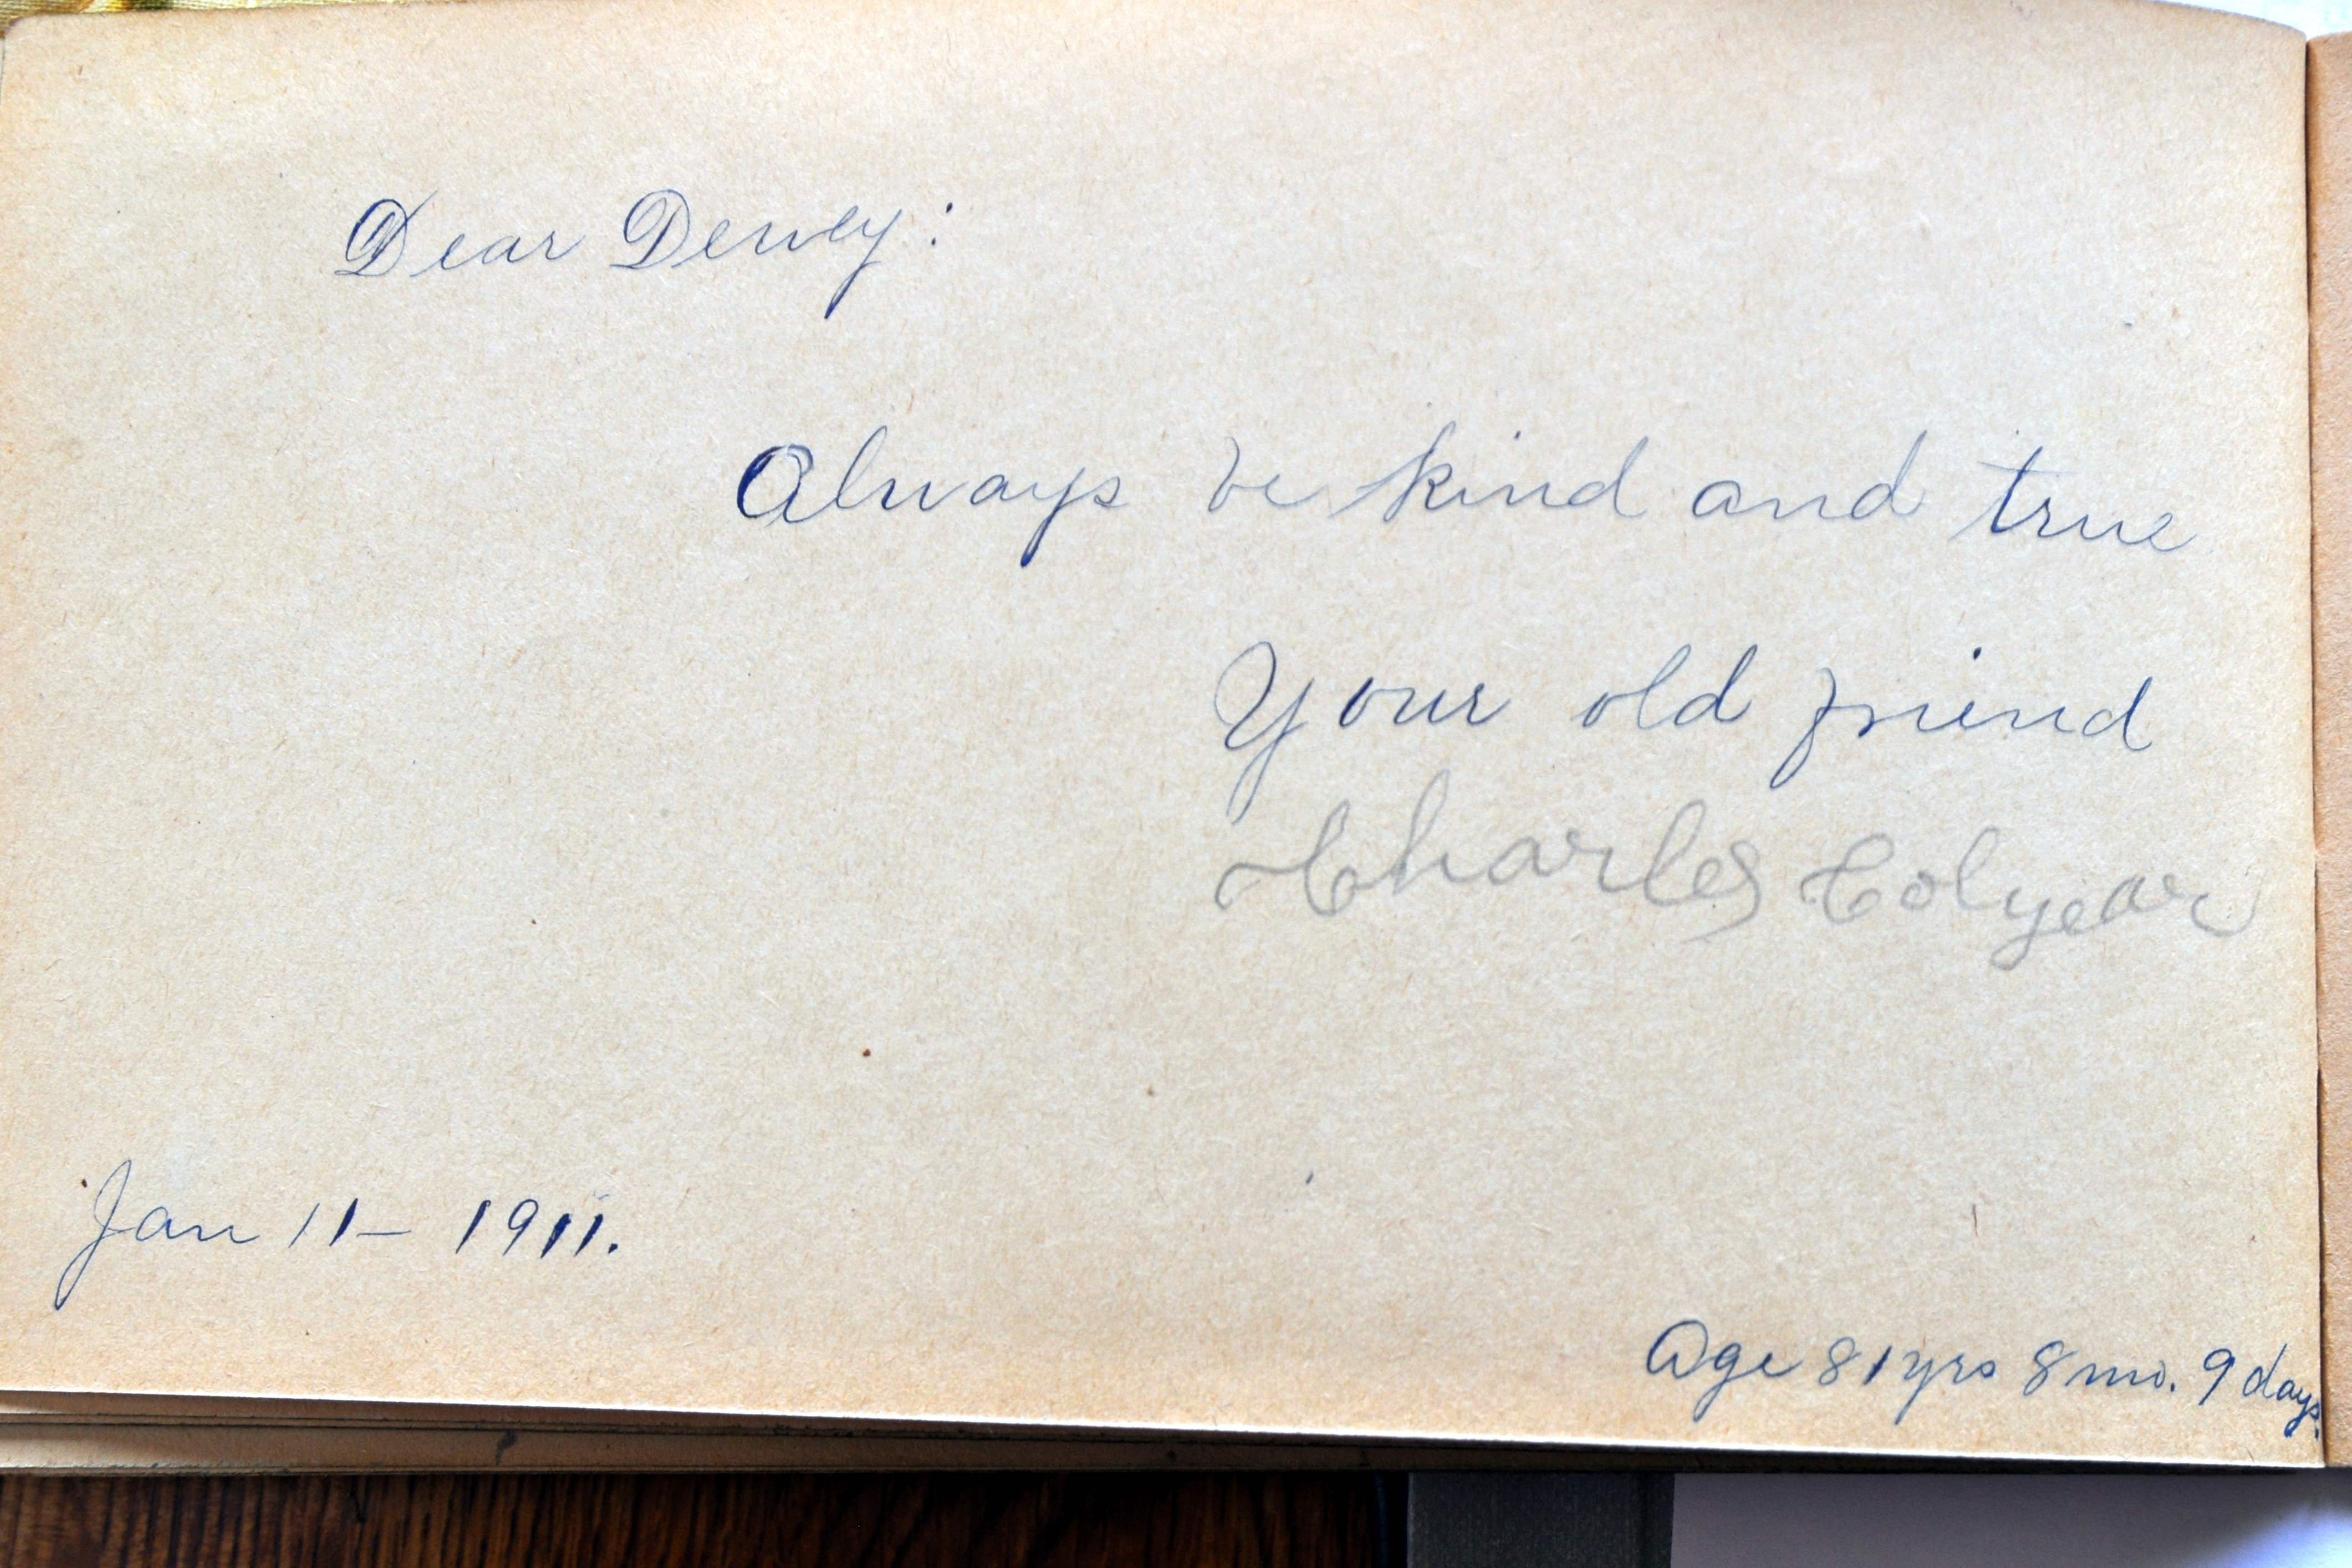 Dear Dewey:
Always be kind and true
Your old friend
Charles Colyear
Jan 11- 1911.
Age 81 yrs 8 mo. 9 days.